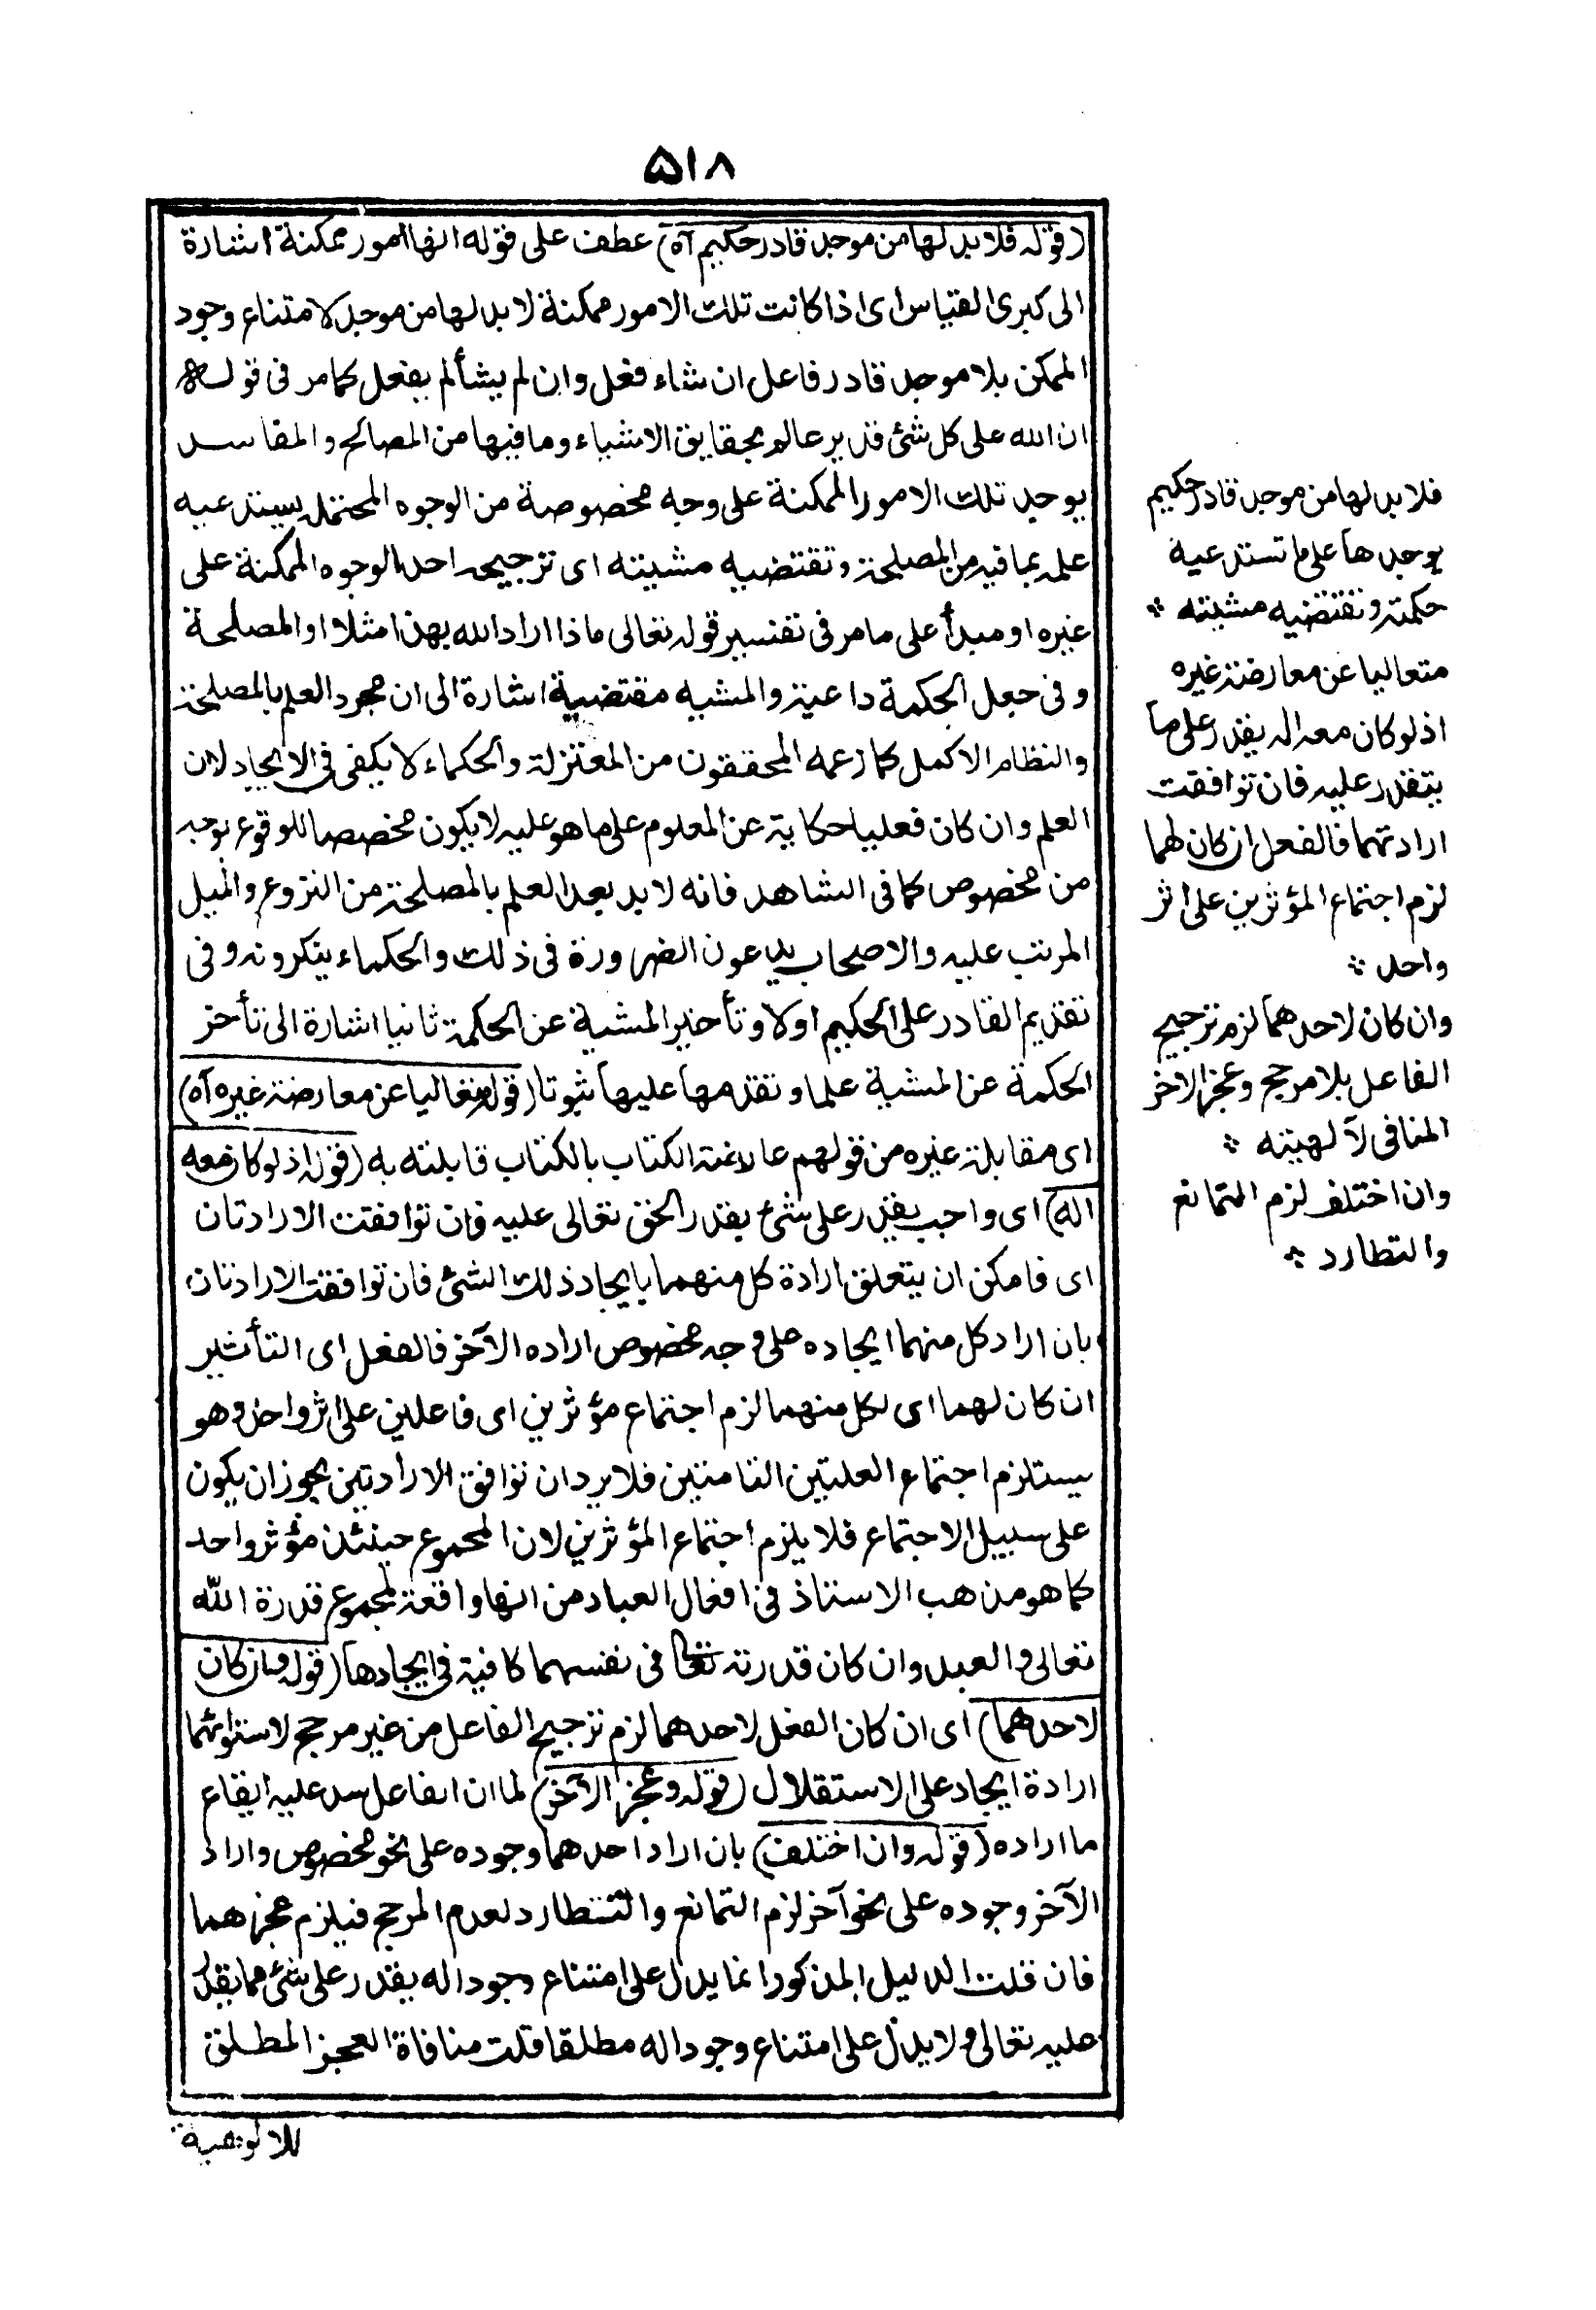 ٥١٨
(قوله فلا بد لها من موجد قادر حكيم آه) عطف على قوله انها امور ممكنة اشارة
الى كبرى القياس اى اذا كانت تلك الامور ممكنة لا بد لها من موجد لامتناع وجود
الممكن بلا موجد قادر فاعل ان شاء فعل وان لم يشأ لم يفعل كما مر فى قوله
ان الله على كل شئ قدير عالم بحقايق الاشياء وما فيها من المصالح والمفاسد
يوجد تلك الامور الممكنة على وجه مخصوصة من الوجوه المحتملة يستدعيه
علمه بما فيه من المصلحة وتقتضيه مشيته اى ترجيحه احد الوجوه الممكنة على
غيره او مبدأ على ما مر فى تفسير قوله تعالى ماذا اراد الله بهذا مثلا او المصلحة
وفى جعل الحكمة داعية والمشية مقتضية اشارة الى ان مجرد العلم بالمصلحة
والنظام الاكمل كما زعمه المحققون من المعتزلة والحكماء لا يكفى فى الايجاد لان
العلم وان كان فعليا حكاية عن المعلوم على ما هو عليه لا يكون مخصصا للوقوع بوجه
من مخصوص كما فى الشاهد فانه لا بد بعد العلم بالمصلحة من النزوع والميل
المرتب عليه والاصحاب يدعون الضرورة فى ذلك والحكماء ينكرونه وفى
تقديم القادر على الحكيم اولا وتأخير المشية عن الحكمة ثانيا اشارة الى تأخر
الحكمة عن المشية علما وتقدمها عليها ثبوتا (قوله متعاليا عن معارضة غيره آه)
اى مقابلة غيره من قولهم عارضة الكتاب بالكتاب قابلته به (قوله اذ لو كان معه
اله) اى واجب يقدر على شئ يقدر الحق تعالى عليه فان توافقت الارادتان
اى فامكن ان يتعلق ارادة كل منهما بايجاد ذلك الشئ فان توافقت الارادتان
بان اراد كل منهما ايجاده على وجه مخصوص اراده الآخر فالفعل اى التأثير
ان كان لهما اى لكل منهما لزم اجتماع مؤثرين اى فاعلين على اثر واحد وهو
يستلزم اجتماع العلتين التامتين فلا يرد ان توافق الارادتين يجوز ان يكون
على سبيل الاجتماع فلا يلزم اجتماع المؤثرين لان المجموع حينئذ مؤثر واحد
كما هو مذهب الاستاذ فى افعال العباد من انها واقعة بمجموع قدرة الله
تعالى والعبد وان كان قدرته تعالى فى نفسهما كافية فى ايجادها (قوله وان كان
لاحدهما) اى ان كان الفعل لاحدهما لزم ترجيح الفاعل من غير مرجح لاستوائهما
ارادة ايجاد على الاستقلال (قوله وعجز الآخر) لما ان الفاعل سد عليه ايقاع
ما اراده (قوله وان اختلف) بان اراد احدهما وجوده على نحو مخصوص واراد
الآخر وجوده على نحو آخر لزم التمانع والتطارد لعدم المرجح فيلزم عجزهما
فان قلت الدليل المذكور انما يدل على امتناع وجود اله يقدر على شئ مما يقدر
عليه تعالى ولا يدل على امتناع وجود اله مطلقا قلت منافاة العجز المطلق
للالوهية
فلا بد لها من موجد قادر حكيم
يوجدها على ما تستدعيه
حكمته وتقتضيه مشيته ⁂
متعاليا عن معارضة غيره
اذ لو كان معه اله يقدر على ما
يتقدر عليه فان توافقت
ارادتهما فالفعل ان كان لهما
لزم اجتماع المؤثرين على اثر
واحد ⁂
وان كان لاحدهما لزم ترجيح
الفاعل بلا مرجح وعجز الاخر
المنافى لآلهيته ⁂
وان اختلف لزم التمانع
والتطارد ⁂